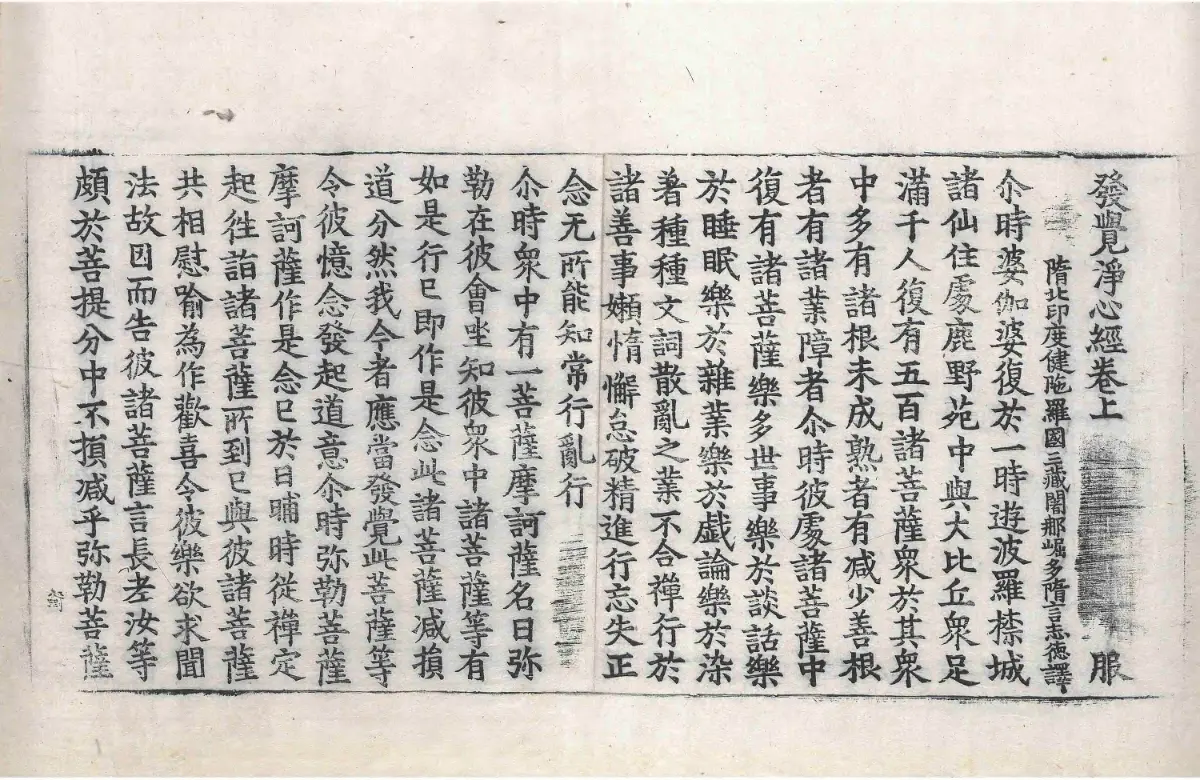 發覺淨心經卷上 服
隋北印度健陁羅國三藏闍那崛多隋言志德譯
尒時婆伽婆復於一時遊波羅㮈城
諸仙住處鹿野苑中與大比丘衆足
滿千人復有五百諸菩薩衆於其衆
中多有諸根未成熟者有减少善根
者有諸業障者尒時彼處諸菩薩中
復有諸菩薩樂多世事樂於談話樂
於睡眠樂於雜業樂於戱論樂於染
著種種文詞散亂之業不合禪行於
諸善事嬾惰懈怠破精進行忘失正
念无所能知常行亂行
尒時衆中有一菩薩摩訶薩名曰弥
勒在彼會坐知彼衆中諸菩薩等有
如是行已即作是念此諸菩薩减損
道分然我今者應當發覺此菩薩等
令彼憶念發起道意尒時弥勒菩薩
摩訶薩作是念已於日晡時從禪定
起徃詣諸菩薩所到已與彼諸菩薩
共相慰喻為作歡喜令彼樂欲求聞
法故因而告彼諸菩薩言長老汝等
頗於菩提分中不損减乎弥勒菩薩